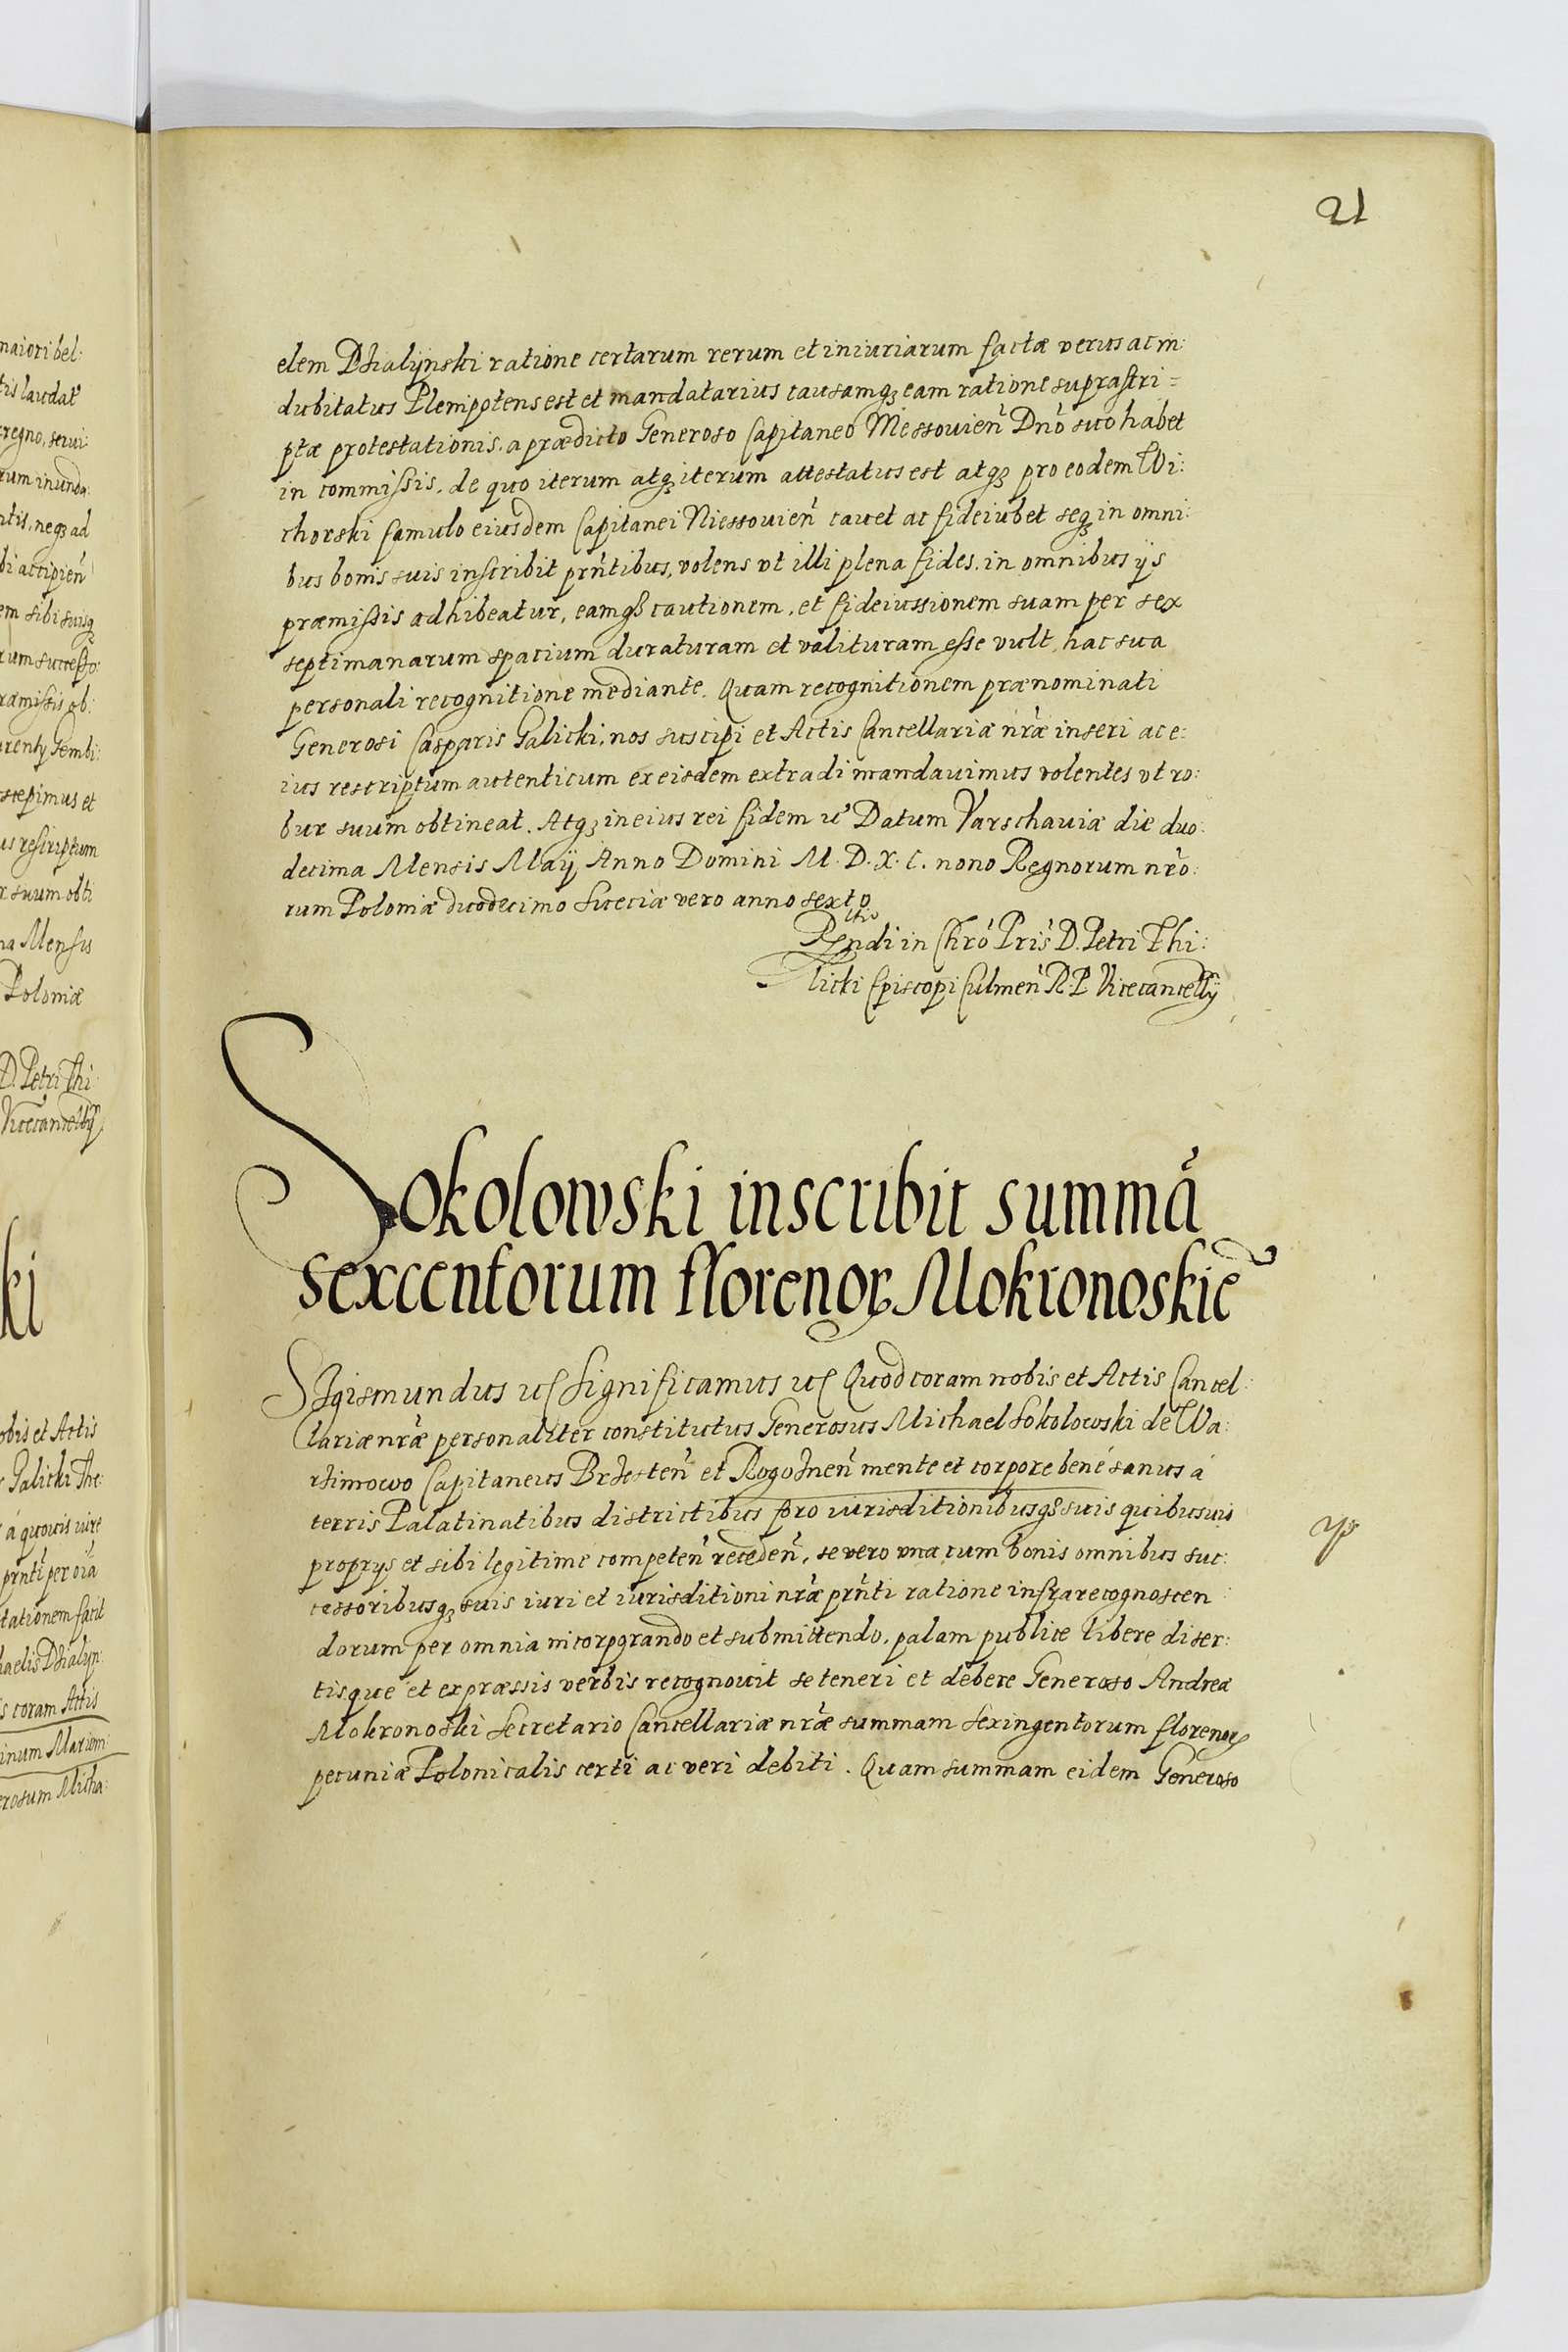 maiori bel:
tis laudat
regno, serui:
rum inunda
ntis, neqʒ ad
bi accipien̄
em sibi suisqʒ
rum successo:
ræmissis ob:
urentÿ Gembi:
scepimus et
us rescriptum
r suum obti
na Mensis
Poloniæ
D. Petri Thi:
Vicecancellÿ
ki
obis et Actis
Galicki The:
á quouis iure
prn̄ti per oīa
tationem facit
haelis Dzialyn:
s coram Actis
inum Marium
erosum Micha:
21
elem Dzialÿnski ratione certarum rerum et iniuriarum factæ verus ac in:
dubitatus Plenipotens est et mandatarius causamqʒ eam ratione suprascri=
ptæ protestationis, a prædicto Generoso Capitaneo Niessouien̄ Dnō suo habet
in commissis, de quo iterum atqʒ iterum attestatus est atqʒ pro eodem Wi:
chorski famulo eiusdem Capitanei Niessouien̄ cauet ac fideiubet seqʒ in omni:
bus bonis suis inscribit prn̄tibus, volens vt illi plena fides, in omnibus ÿs
præmissis adhibeatur, eamqʒ cautionem, et fideiussionem suam per sex
septimanarum spacium duraturam et valituram esse vult, hac sua
personali recognitione mediante. Quam recognitionem prænominati
Generosi Casparis Galicki, nos suscipi et Actis Cancellariæ nrāe inseri ac e:
ius rescriptum autenticum ex eisdem extradi mandauimus volentes vt ro:
bur suum obtineat. Atqʒ in eius rei fidem uc̄ Datum Varschauiæ die duo:
decima Mensis Maÿ Anno Domini M. D. X. C. nono Regnorum nrō:
rum Poloniæ duodecimo Sueciæ vero anno sexto
Rltio Rn̄di in Chrō Pris̄ D. Petri Thi:
licki Episcopi Culmen̄ R. P. Vicecancellÿ
Sokolowski inscribit summā
sexcentorum florenoꝝ Mokronoskiē
SIgismundus uc̄ Significamus uc̄ Quod coram nobis et Actis Cancel:
lariæ nrāe personaliter constitutus Generosus Michael Sokolowski de Wa:
rzimowo Capitaneus Brzesten̄ et Rogoznen̄ mente et corpore bené sanus á
terris Palatinatibus districtibus foro iurisditionibusqʒ suis quibusuis
proprÿs et sibi legitimé competen̄ receden̄, se vero vna cum bonis omnibus suc:
cessoribusqʒ suis iuri et iurisditioni nrāe prn̄ti ratione infra recognoscen:
dorum per omnia incorporando et submittendo, palam publice libere diser:
tisque et expræssis verbis recognouit se teneri et debere Generoso Andreæ
Mokronoski Secretario Cancellariæ nrāe summam sexingentorum florenoꝝ
pecuniæ Polonicalis certi ac veri debiti. Quam summam eidem Generoso